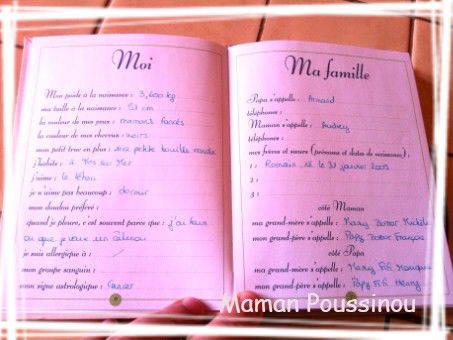 Moi
Mon poids à la naissance : 3,600 kg
ma taille à la naissance : 51 cm
la couleur de mes yeux : marrons foncés
la couleur de mes cheveux : noirs
mon petit truc en plus : ma petite bouille ronde
j'habite : à sur Mer
j'aime : le
je n'aime pas beaucoup : dormir
mon doudou préféré :
quand je pleure, c'est souvent parce que : j'ai faim
ou que je veux un calinou
je suis allergique à : /
mon groupe sanguin :
mon signe astrologique : Cancer
Ma famille
Papa s'appelle : Arnaud
téléphone :
Maman s'appelle : Audrey
téléphone :
mes frères et sœurs (prénoms et dates de naissance) :
1 : Romain, né le 31 janvier
2 :
3 :
côté Maman
ma grand-mère s'appelle : Mamy Michèle
mon grand-père s'appelle : Papy François
côté Papa
ma grand-mère s'appelle : Mamy Monique
mon grand-père s'appelle : Papy Henry
Maman Poussinou